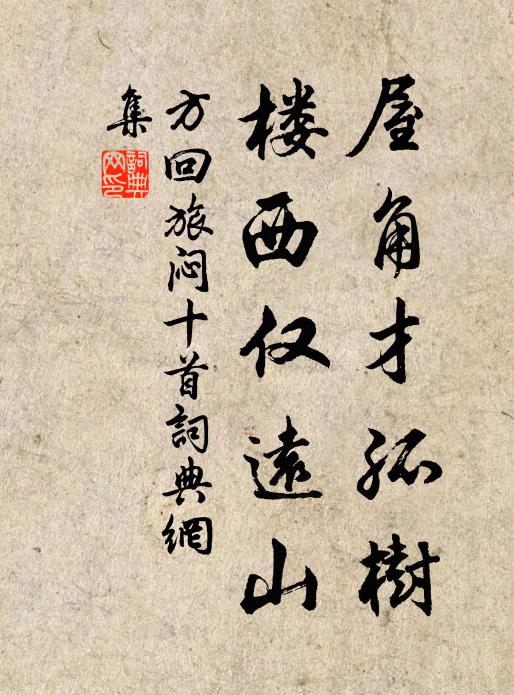 屋角才孤樹
楼西仅遠山
方回旅闷十首詞典網
集
詞典
网印